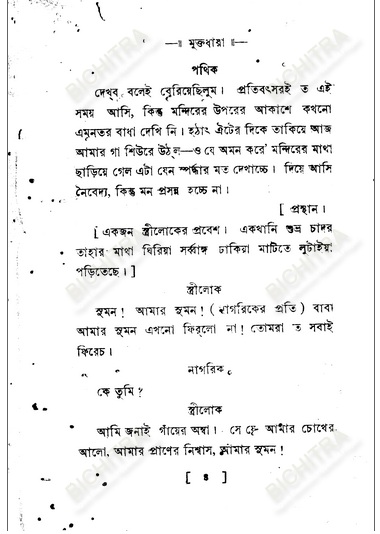 —॥ মুক্তধারা ॥—
পথিক
দেখ্‌ব বলেই বেরিয়েছিলুম। প্রতিবৎসরই ত এই
সময় আসি, কিন্তু মন্দিরের উপরের আকাশে কখনো
এমনতর বাধা দেখি নি। হঠাৎ ঐটের দিকে তাকিয়ে আজ
আমার গা শিউরে উঠ্‌ল—ও যে অমন করে’ মন্দিরের মাথা
ছাড়িয়ে গেল এটা যেন স্পর্দ্ধার মত দেখাচ্চে। দিয়ে আসি
নৈবেদ্য, কিন্তু মন প্রসন্ন হচ্চে না।
[ প্রস্থান।
[ একজন স্ত্রীলোকের প্রবেশ। একখানি শুভ্র চাদর
তাহার মাথা ঘিরিয়া সর্ব্বাঙ্গ ঢাকিয়া মাটিতে লুটাইয়া
পড়িতেছে। ]
স্ত্রীলোক
সুমন! আমার সুমন! ( নাগরিকের প্রতি ) বাবা
আমার সুমন এখনো ফির্‌লো না! তোমরা ত সবাই
ফিরেচ।
নাগরিক
কে তুমি?
স্ত্রীলোক
আমি জনাই গাঁয়ের অম্বা। সে যে আমার চোখের
আলো, আমার প্রাণের নিশ্বাস, আমার সুমন!
[ ৪ ]
BICHITRA
BICHITRA
BICHITRA
BICHITRA
BICHITRA
BICHITRA